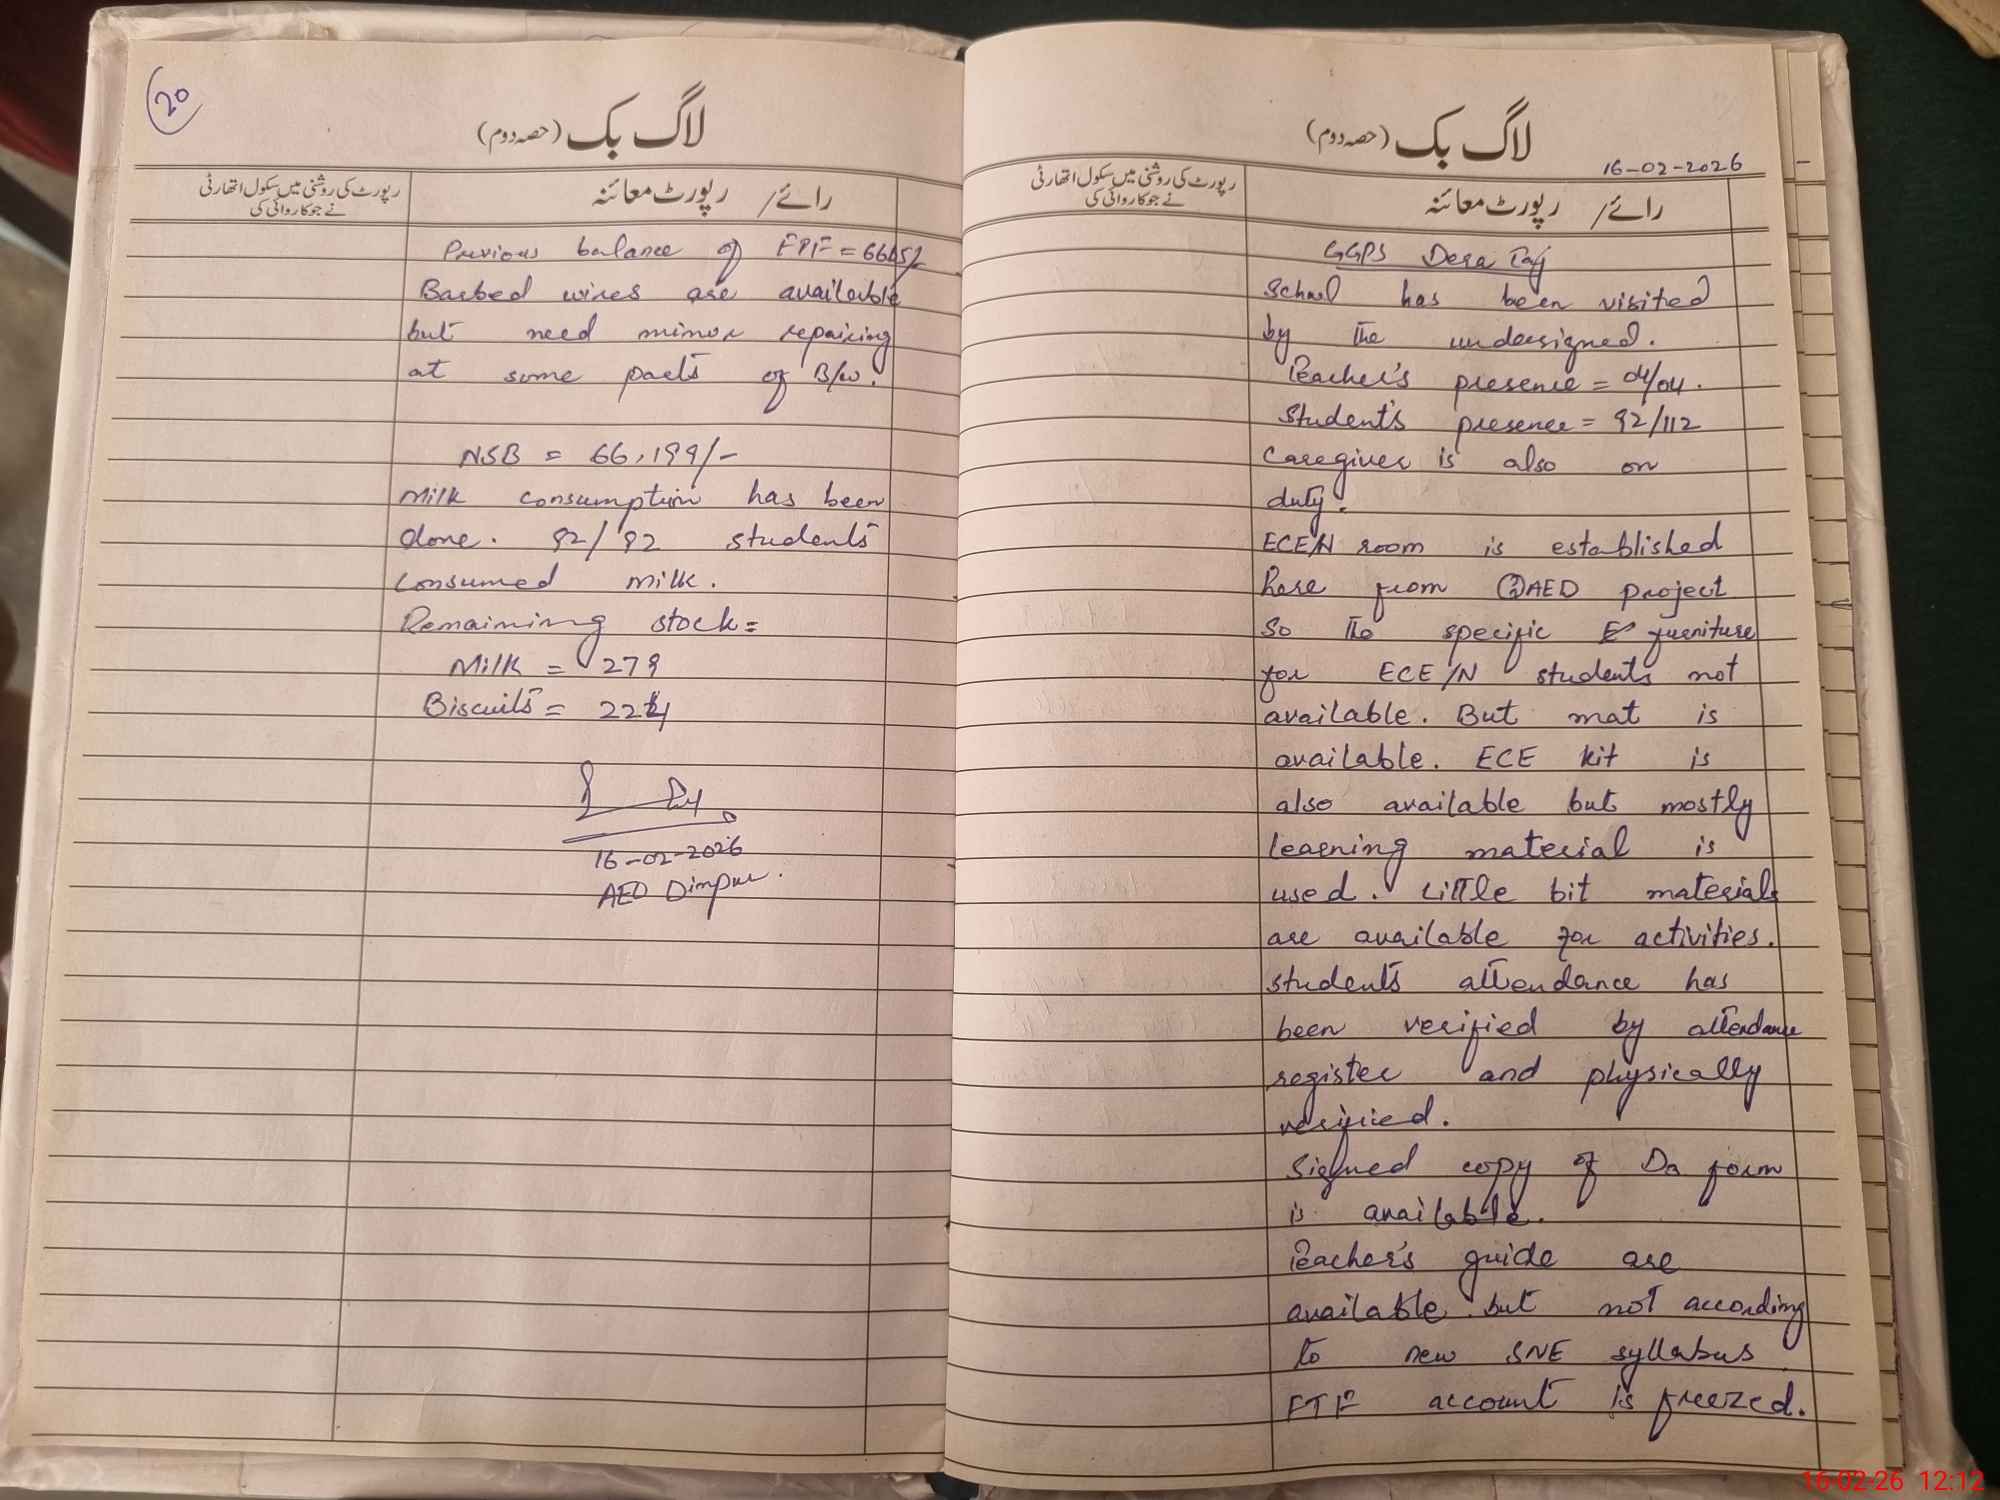 20
لاگ بک (حصہ دوم)
رائے / رپورٹ معائنہ
رپورٹ کی روشنی میں سکول اتھارٹی
نے جو کاروائی کی
Previous balance of = 6665/
Barbed wires are available
but need minor repairing
at some parts of B/w.
NSB = 66,199/-
Milk consumption has been
done. 92/92 students
consumed milk.
Remaining stock =
Milk = 279
Biscuits = 224
16-02-2026
AEO Dinpur.
لاگ بک (حصہ دوم)
16-02-2026
رائے / رپورٹ معائنہ
رپورٹ کی روشنی میں سکول اتھارٹی
نے جو کاروائی کی
GGPS Dera Taj
School has been visited
by the undersigned.
Teacher's presence = 04/04.
Student's presence = 92/112
Caregiver is also on
duty.
ECE/N room is established
here from AED project
So the specific furniture
for ECE/N students not
available. But mat is
available. ECE kit is
also available but mostly
learning material is
used. Little bit materials
are available for activities.
students attendance has
been verified by attendance
register and physically
verified.
Signed copy of Da form
is available.
Teacher's guide are
available but not according
to new SNE syllabus
FTF account is freezed.
16-02-26 12:12